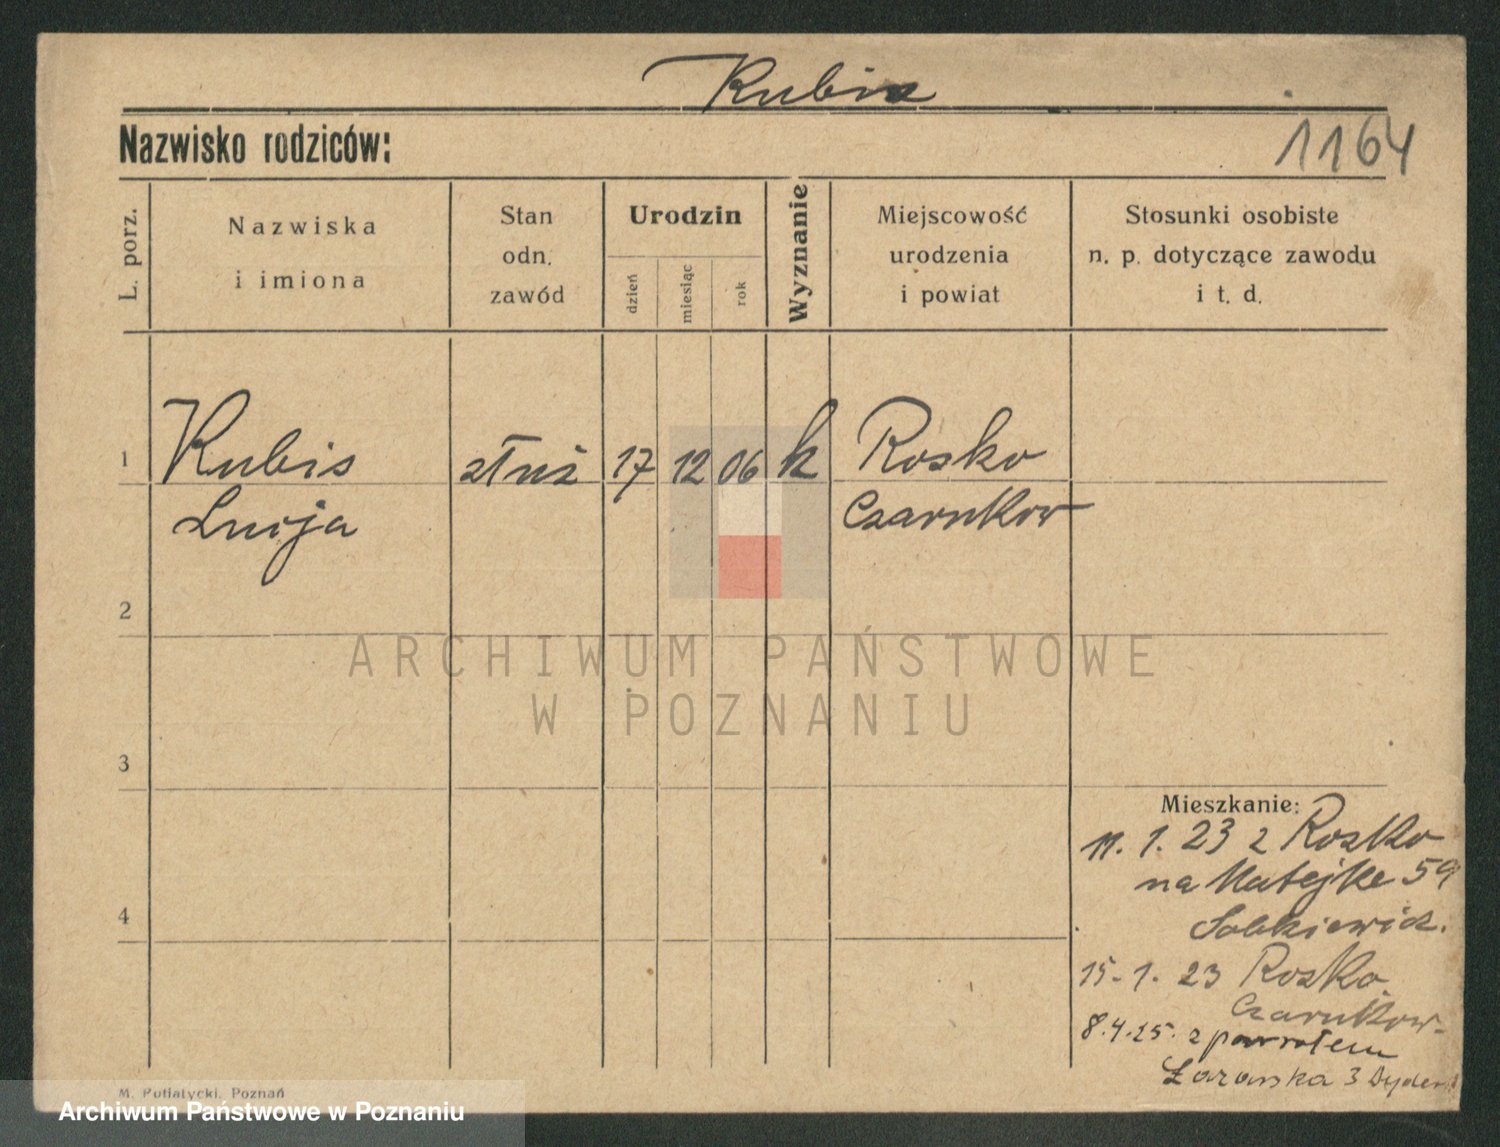 Kubis
Nazwisko rodziców:
1164
L. porz.
Nazwiska
i imiona
Stan
odn.
zawód
Urodzin
dzień
miesiąc
rok
Wyznanie
Miejscowość
urodzenia
i powiat
Stosunki osobiste
n. p. dotyczące zawodu
i t. d.
1
Kubis
służ
17
12
06
k
Rosko
Łucja
Czarnkow
2
ARCHIWUM PAŃSTWOWE
W POZNANIU
3
Mieszkanie:
11. 1. 23 z Rosko
na Matejke 59
Sobkiewicz.
4
15. 1. 23 Rosko
Czarnkow
8.4.25. z powrotem
3
M. Putiatycki, Poznań
Archiwum Państwowe w Poznaniu